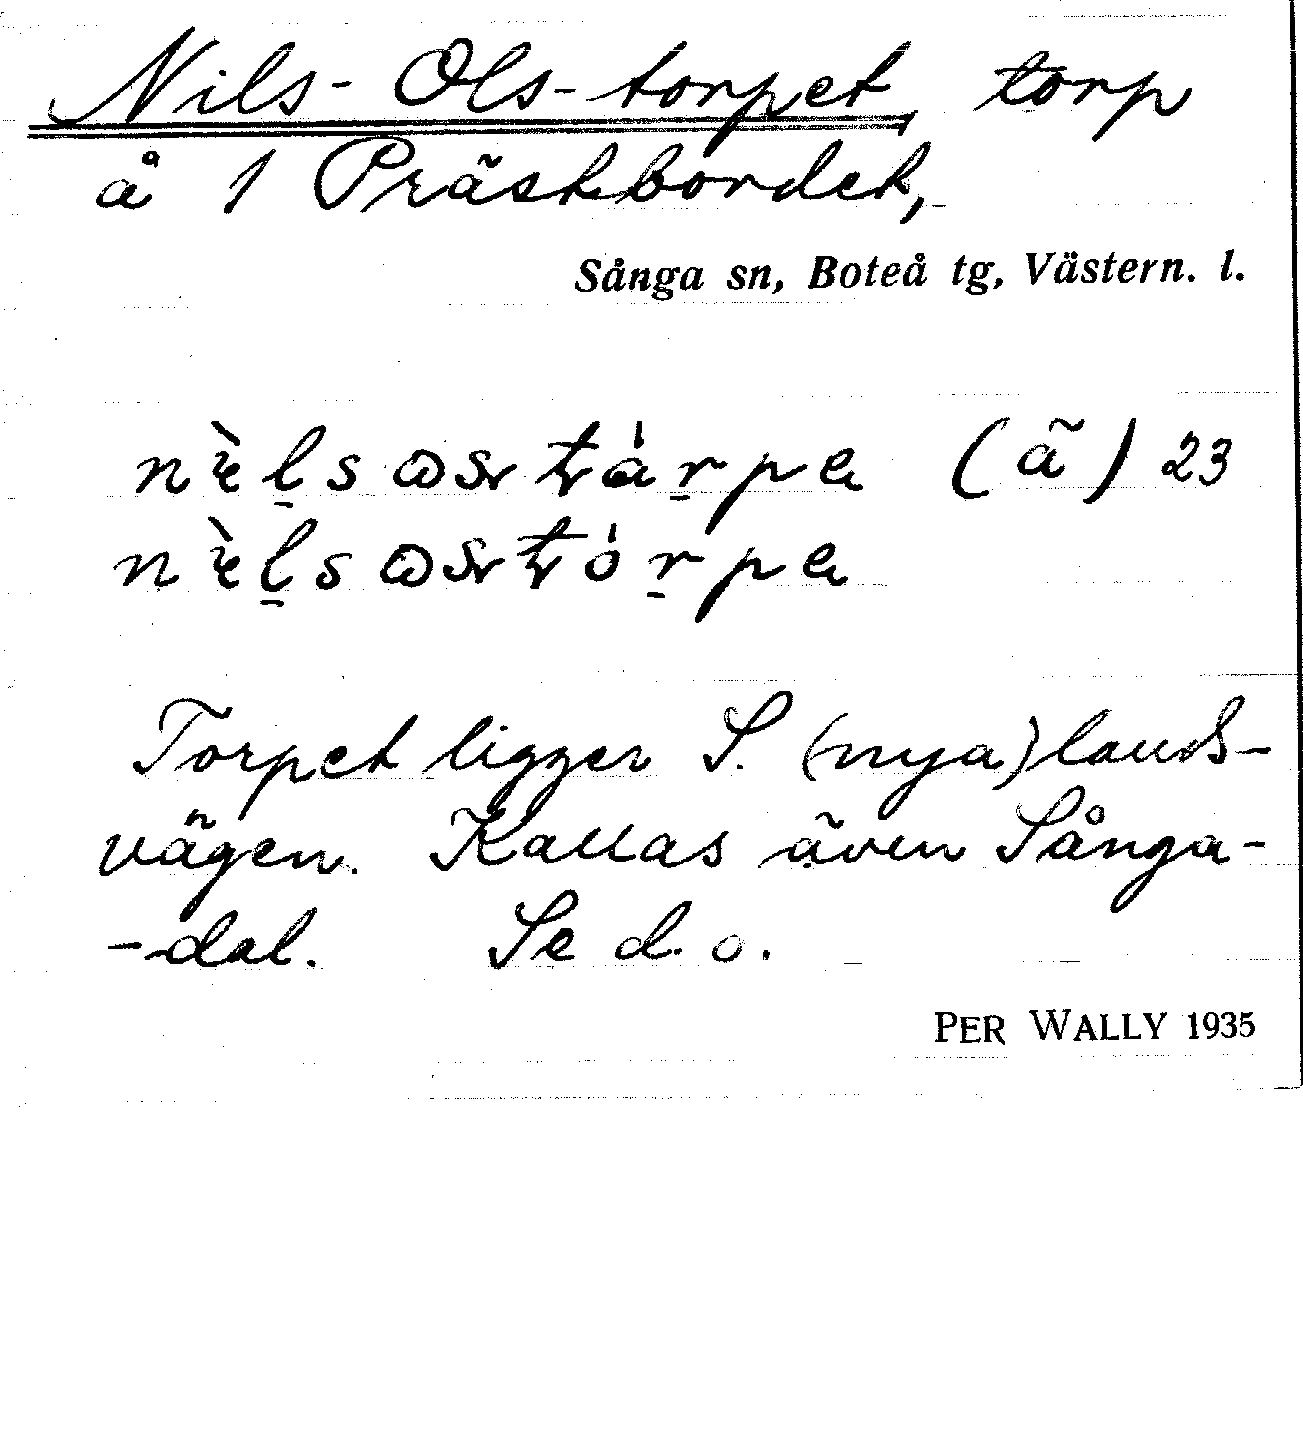 Nils-Ols-torpet, torp
å 1 Prästbordet,
Sånga sn, Boteå tg, Västern. l.
(ä) 23
Torpet ligger S. (nya) lands-
vägen. Kallas även Sånga-
-dal. Se d. o.
PER WALLY 1935